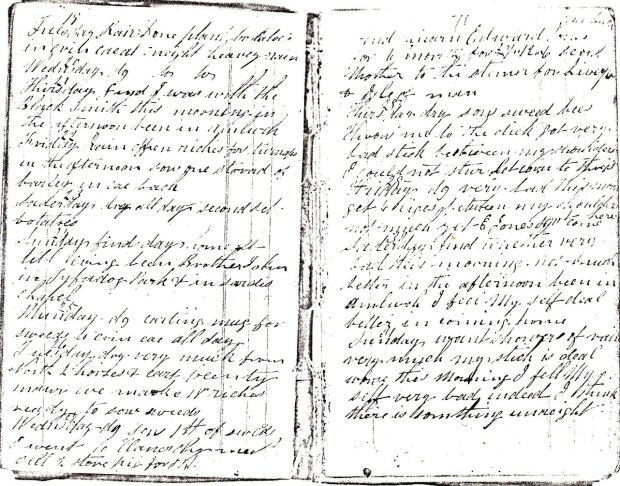 Tuesday Rain done plant potatoes
in evin caeat night heavey rain
Wednesday dy do do
Thirsday find I was with the
Black Smith this morning in
the afternoon been in amlwch
Friday rain open riches for turnips
in the afternoon sow one stovad of
barley in cae bach
Saderday dry all day second set
potatoes
Sunday find day home at
tell evning been Brother John
in Dyfadog Park & in sardis
chapel
Munday dy carting mug for
sweeds to evin cae all day
Tuesday dry very much from
North 2 horses & cart
we make 18 riches
ready to sow sweeds
Wednesday dy sow 1st of sweeds
I went to Llanerchymedd
71
and learn Edward
for 6 month for
Mother to the stimer for Liverpool
& Isle of man
Thirsday dry sow sweed bees
thron me to the dick got very
bad stich between my shoulders
I could not stur
Friday dy very bad this morn
get between my shoulders
not much yet E Jones come here
Saderday find wether very
bad this morning not much
better in the afternoon been in
amlwch I feel my self deal
better in coming home
Sunday want showers of rain
very much my stich is deal
worse this morning I fell my
self very bad indeed I think
there is something unreight